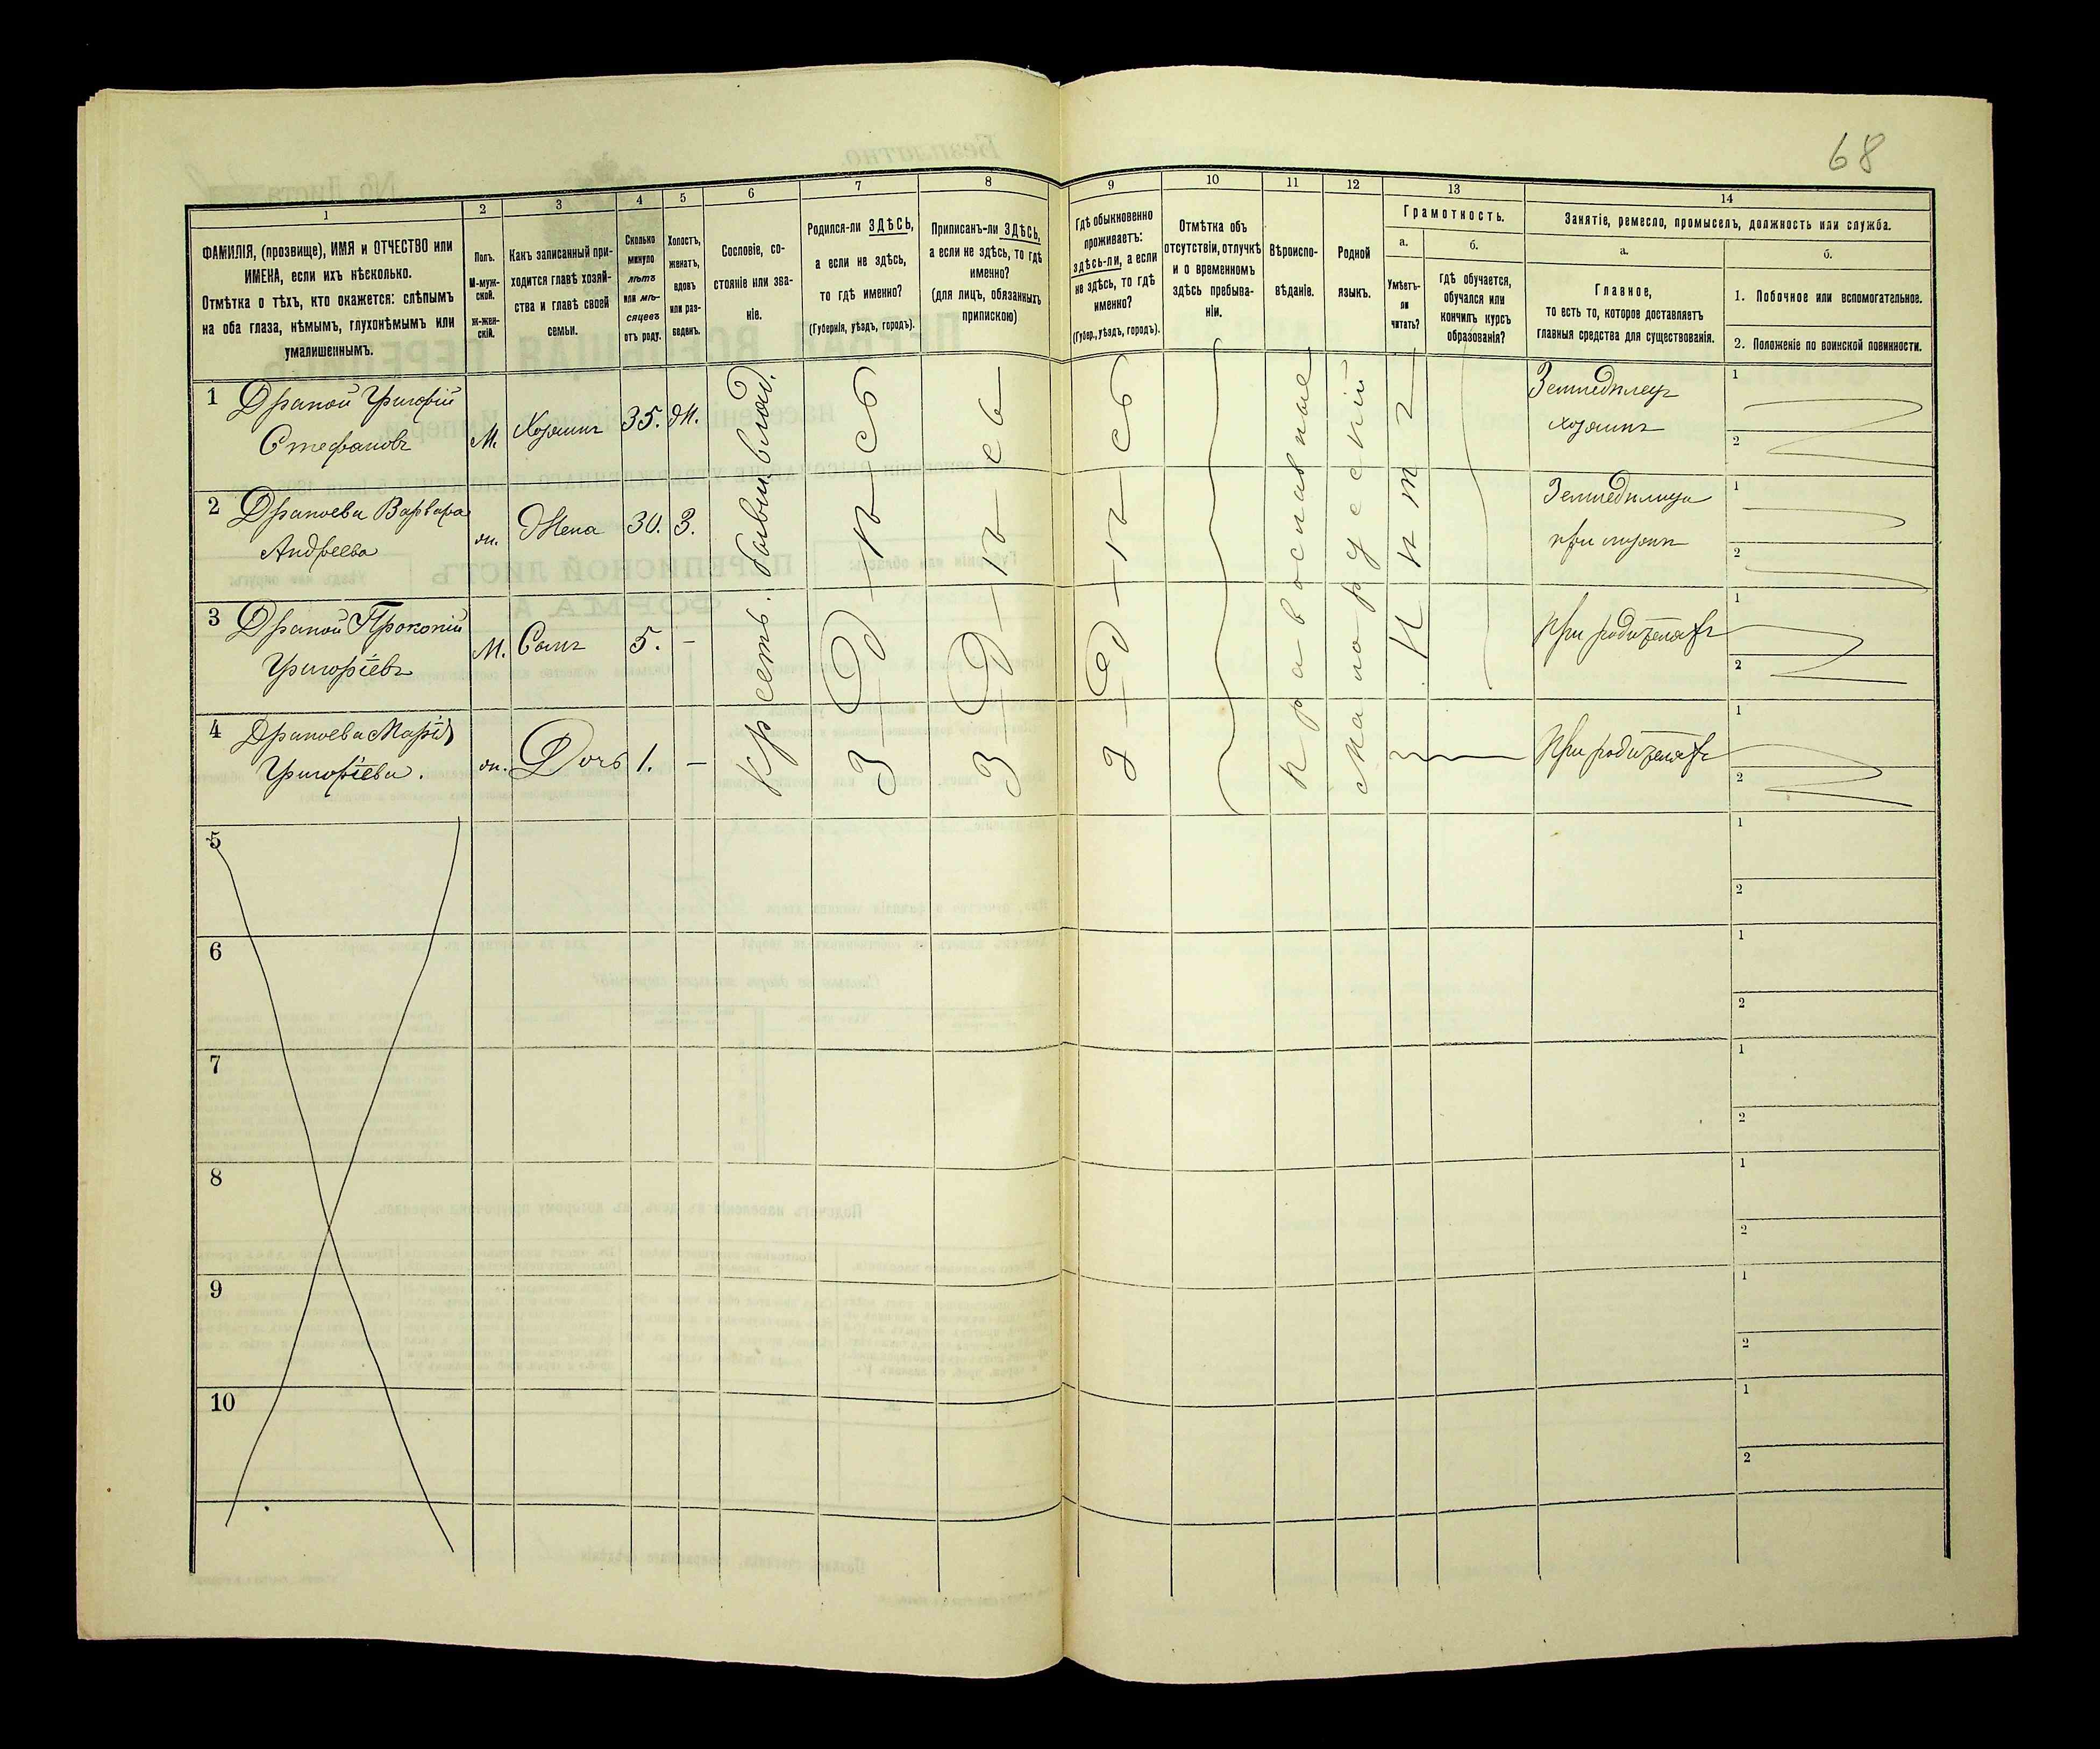 68
1
2
3
4
5
6
7
8
9
10
11
12
13
14
ФАМИЛІЯ, (прозвище), ИМЯ и ОТЧЕСТВО или
ИМЕНА, если ихъ нѣсколько.
Отмѣтка о тѣхъ, кто окажется: слѣпымъ
на оба глаза, нѣмымъ, глухонѣмымъ или
умалишеннымъ.
Полъ.
М-муж-
ской.
Ж-жен-
скій.
Какъ записанный при-
ходится главѣ хозяй-
ства и главѣ своей
семьи.
Сколько
минуло
лѣтъ
или мѣ-
сяцевъ
отъ роду.
Холостъ,
женатъ,
вдовъ
или раз-
веденъ.
Сословіе, со-
стояніе или зва-
ніе.
Родился-ли ЗДѢСЬ,
а если не здѣсь,
то гдѣ именно?
(Губернія, уѣздъ, городъ).
Приписанъ-ли ЗДѢСЬ,
а если не здѣсь, то гдѣ
именно?
(для лицъ, обязанныхъ
припискою)
Гдѣ обыкновенно
проживаетъ:
здѣсь-ли, а если
не здѣсь, то гдѣ
именно?
(Губер., уѣздъ, городъ).
Отмѣтка объ
отсутствіи, отлучкѣ
и о временномъ
здѣсь пребыва-
ніи.
Вѣроиспо-
вѣданіе.
Родной
языкъ.
Грамотность.
а.
Умѣетъ-
ли
читать?
б.
гдѣ обучается,
обучался или
кончилъ курсъ
образованія?
Занятіе, ремесло, промыселъ, должность или служба.
а.
Главное,
то есть то, которое доставляетъ
главныя средства для существованія.
б.
1. Побочное или вспомогательное.
2. Положеніе по воинской повинности.
1 Драной Григорій
Стефановъ
М. Хозяинъ 35. Ж.
Земледѣлецъ
хозяинъ
1
2
2 Драноева Варвара
Андреева
ж. Жена 30. З.
Земледѣлица
при мужѣ
1
2
3 Драной Прокопій
Григоріевъ
М. Сынъ 5. -
При родителяхъ
1
2
4 Драноева Марія
Григоріева.
ж. Дочь 1. -
При родителяхъ
1
2
Крсеть. бывш. влад.
З-д-ѣ-сь
З-д-ѣ-сь
З-д-ѣ-сь
православное
малорусскій
нѣтъ
5
1
2
6
1
2
7
1
2
8
1
2
9
1
2
10
1
2